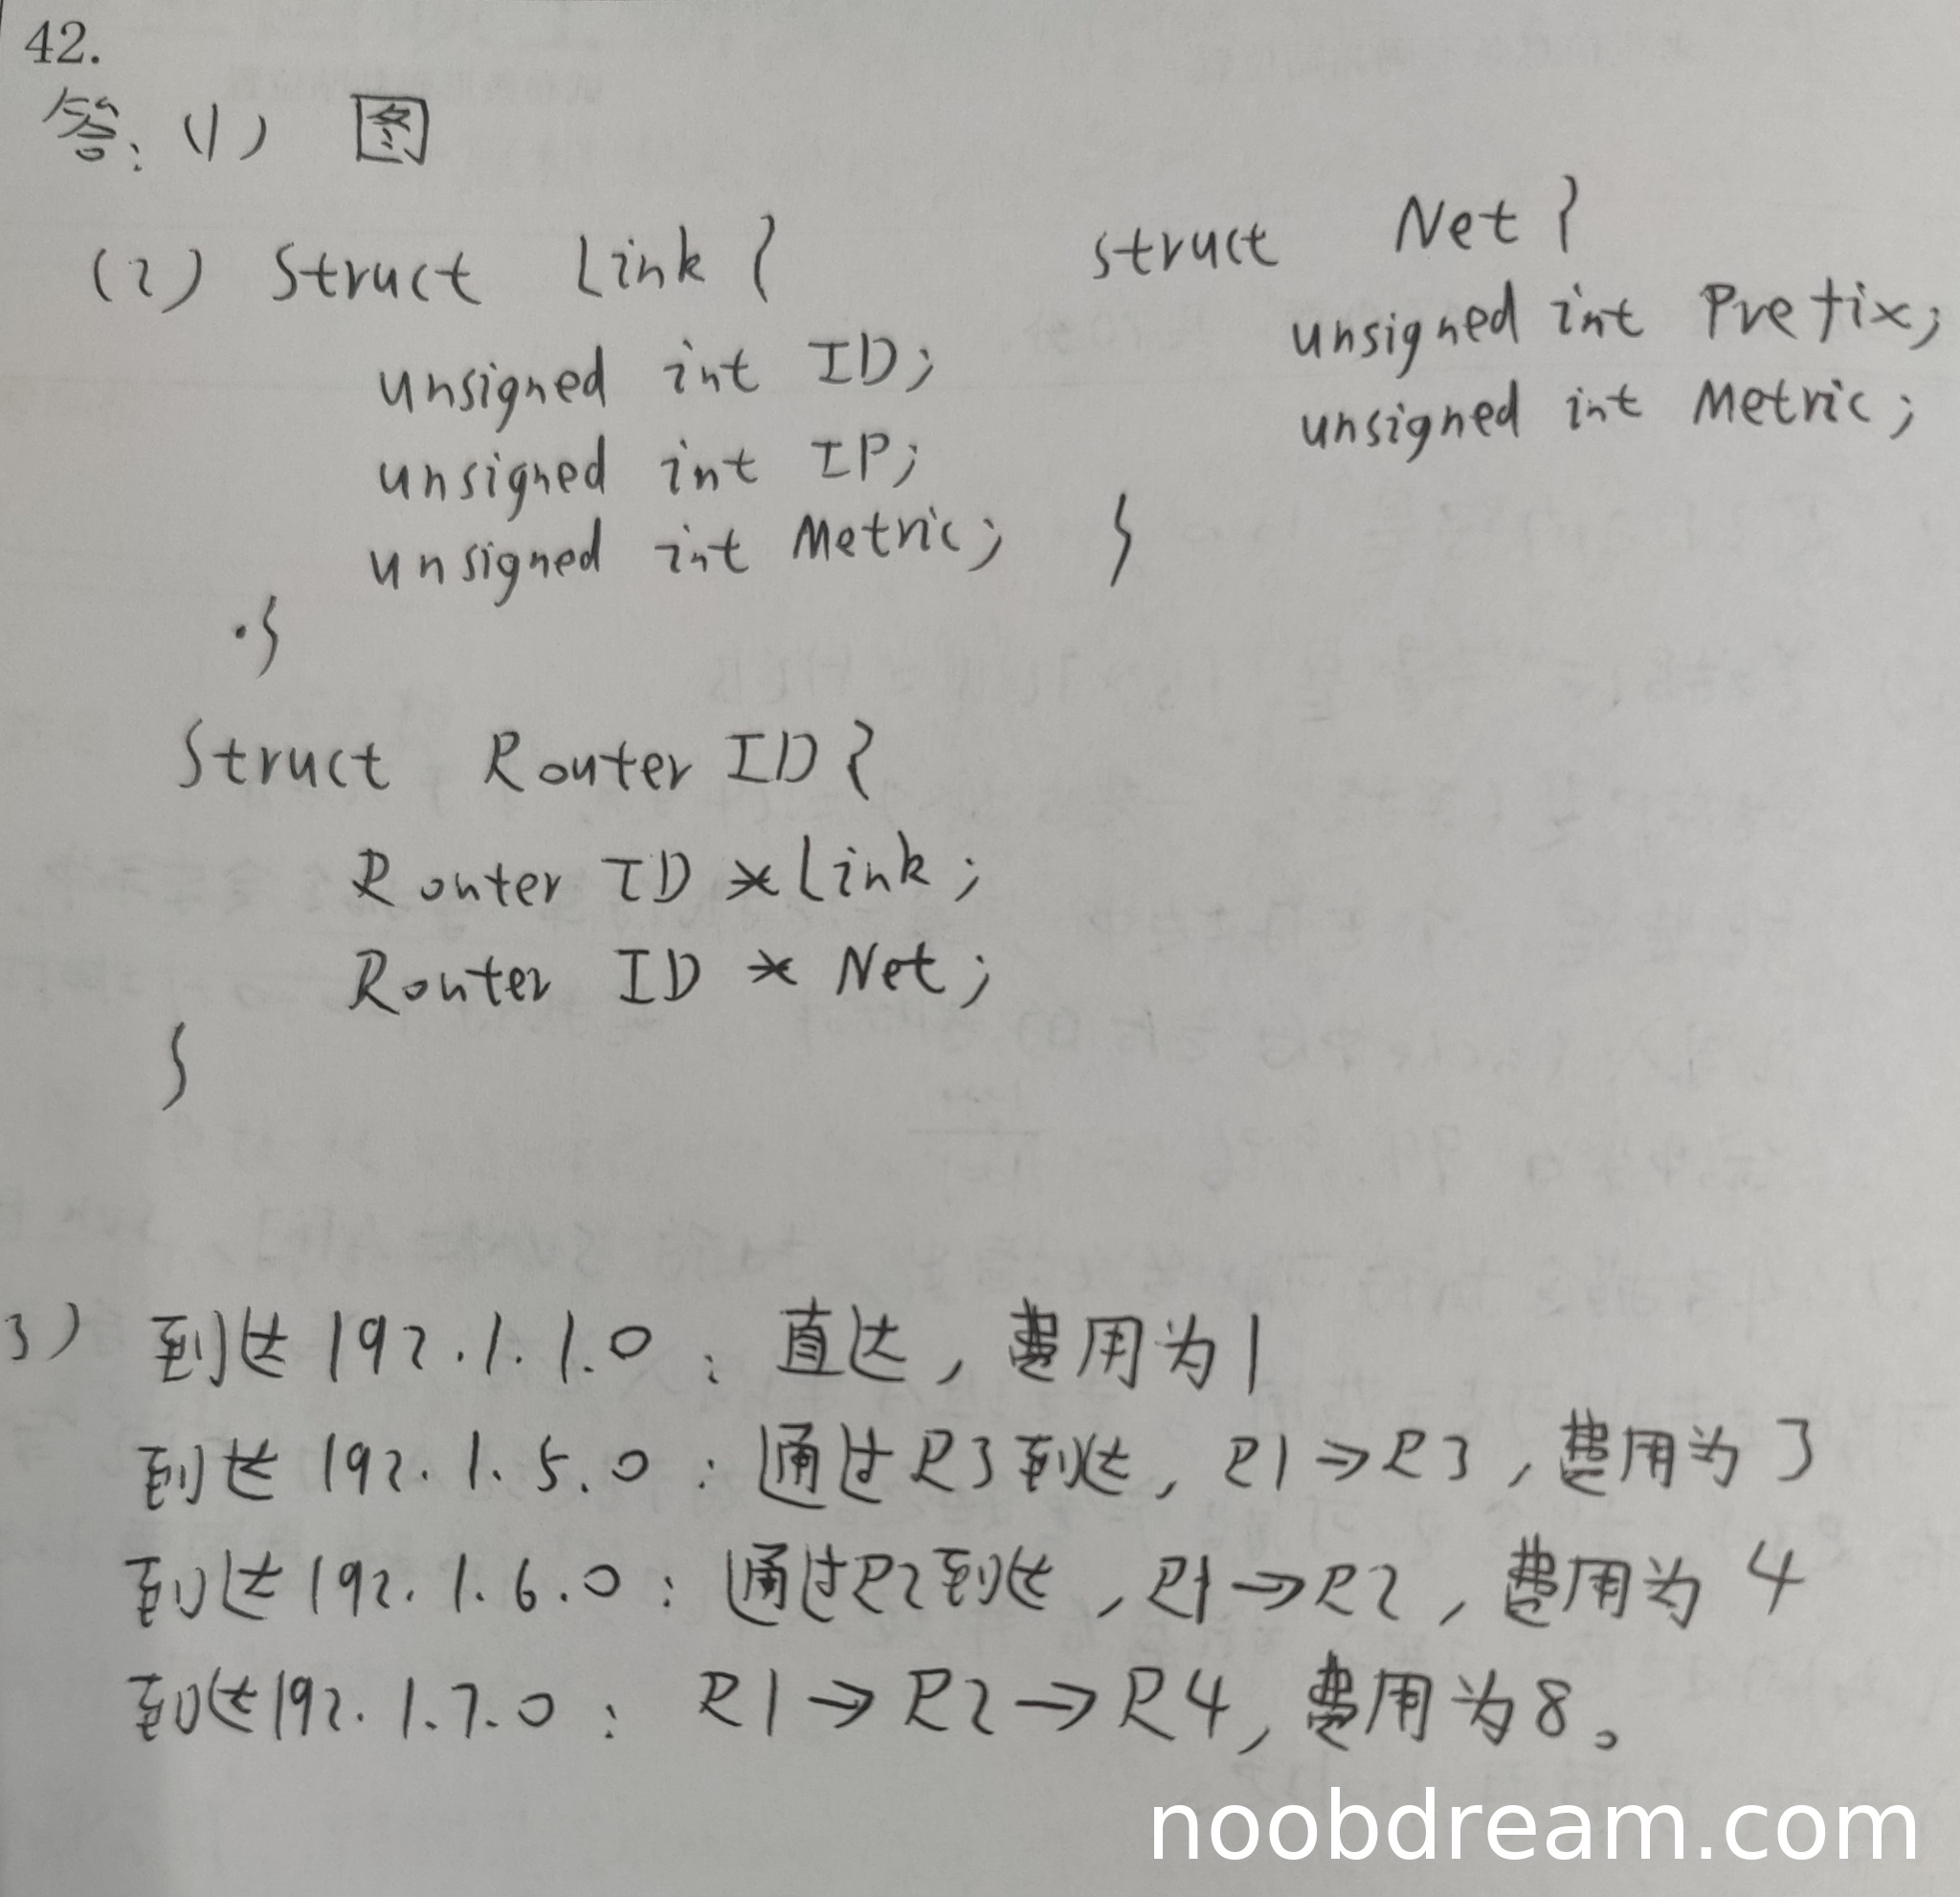 42.
答：(1) 图
(2) Struct Link {
unsigned int ID;
unsigned int IP;
unsigned int Metric;
}
struct Net {
unsigned int Prefix;
unsigned int Metric;
}
Struct Router ID {
Router ID *Link;
Router ID * Net;
}
3) 到达 192.1.1.0：直达，费用为1
到达 192.1.5.0：通过R3到达，R1→R3，费用为3
到达192.1.6.0：通过R2到达，R1→R2，费用为4
到达192.1.7.0：R1→R2→R4，费用为8。
noobdream.com